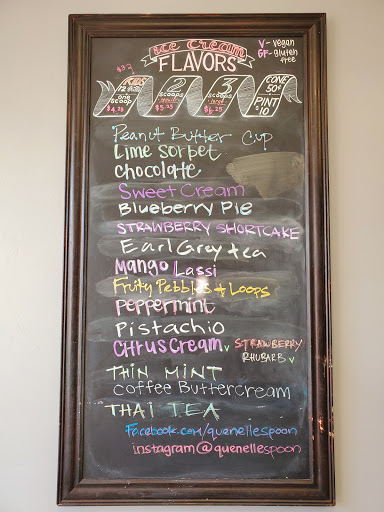 Ice Cream
FLAVORS
V - vegan
GF - gluten free
KIDS
one scoop
$4.25
2 scoops
$5.25
3 scoops
$6.25
CONE 50¢
PINT $10
Peanut Butter Cup
Lime Sorbet
Chocolate
Sweet Cream
Blueberry Pie
STRAWBERRY SHORTCAKE
Earl Grey tea
Mango Lassi
Fruity Pebbles & Loops
Peppermint
Pistachio
CITRUS CREAM v
STRAWBERRY
RHUBARB v
THIN MINT
Coffee Buttercream
THAI TEA
Facebook.com/quenellespoon
instagram@quenellespoon